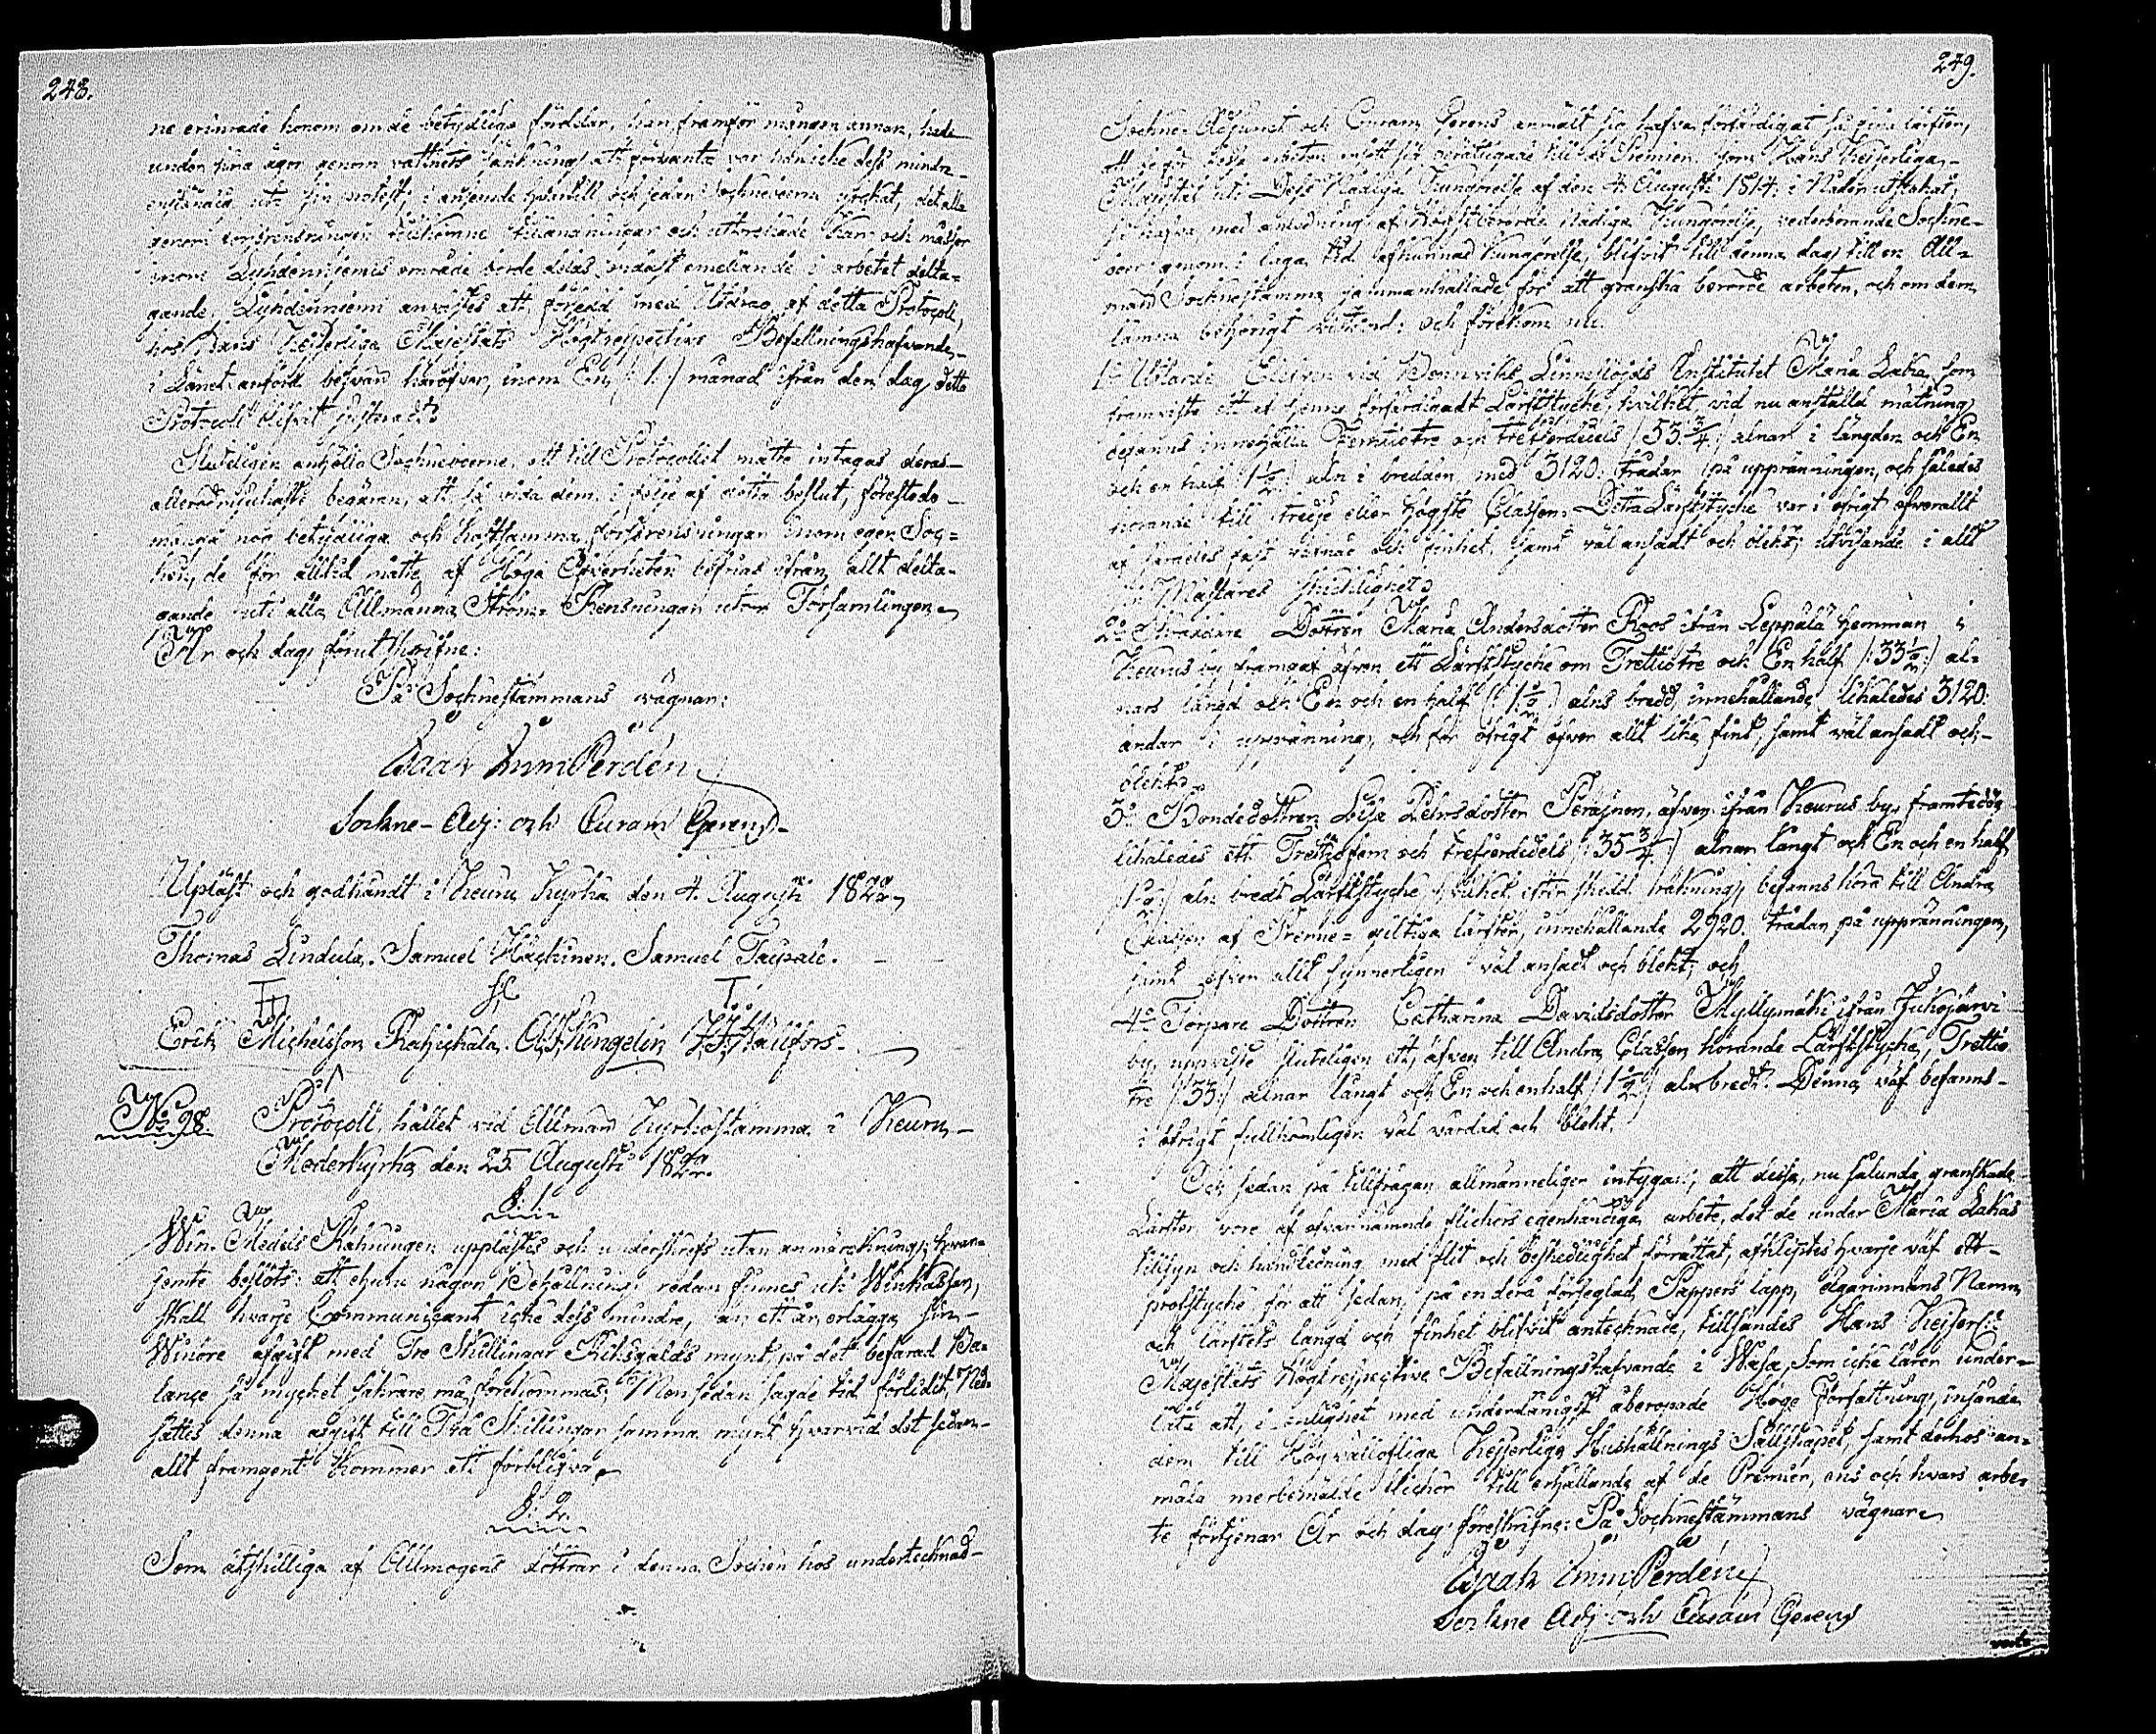 248.
ne erinrade honom om de betydliga fördelar, han framför mången annan, hade
under sina ägor genom vattnets sänkning att förvänta var han icke dess mindre
enständig uti sin protest; i anseende hvartill och sedan Sochneboerne yrckat, det alla
genom forsrensningen tillkomne tillandningar och uttorckade Kärr och måssor
inom Lyhdenniemis område borde delas endast emellan de i arbetet delta-
gande. Lyhdenniemi anvistes att, försedd med Utdrag af detta Protocoll,
hos Hans Kejserliga Majestäts Högtrespective Befallningshafvande
i Länet anföra besvär häröfver, inom En /:1:/ månad ifrån den dag detta
Protocoll blifvit justeradt.
Sluteligen anhöllo Sochneboerne, att till Protocollet måtte intagas deras
allerödmjukaste begäran, att så vida dem, i följe af detta beslut, förestodo
många nog betydliga och kostsamma forsrensningar inom egen Soc=
ken, de för alltid måtte af Höga Öfverheten befrias ifrån allt delta-
gande uti alla Allmänna Ström-Rensningar utom Församlingen.
År och dag förut skrifne:
På Sochnestämmans vägnar:
Isaak Imm Perdén
Sochne-Adj: och Curam Gerens
Upläst och godkändt i Keuru Kyrka den 4. Augusti 1822,
Thomas Lindula. Samuel Hackinen. Samuel Taipale.
Erik Michelsson Rahickala. A. F. Kingelin J. J. Hällfors.
No 98. Protocoll, hållet vid Allmän Kyrkostämma i Keuru
Moderkyrka den 25. Augusti 1822.
§. 1.
Win-Medels Räkningen upplästes och underskrefs utan anmärckning; hvar-
jemte beslöts: att ehuru någon Behållning redan finnes uti Winkassan,
skall hvarje Communicant icke dess mindre, än ett år, erlägga sin
Winöre afgift med Tre Skillingar Riksgälds mynt, på det befarad Ba-
lance så mycket säkrare må förekommas; Men sedan sagde tid förlidit, Ned-
sättes denna afgift till Två Skillingar samma mynt hvarvid det sedan
allt framgent kommer att förblifva.
§. 2.
Som åtskilliga af Allmogens döttrar i denna Sochen hos undertecknad
249.
Sochne-Adjunct och Curam Gerens anmält sig hafva förfärdigat så fina lärfter,
att de för desse arbeten ansett sig berättigade till de Premier, som Hans Kejserliga
Majestät uti Dess Nådiga Kungörelse af den 4. Augusti 1814. i Nåder utfäst,
så hafva, med anledning af Högstberörde Nådiga Kungörelse, vederbörande Sochne-
boer genom i laga tid afkunnad kungörelse, blifvit till denna dag till en All-
män Sochnestämma sammankallade för att granska berörde arbeten, och om dem
lämna behörigt vittsord; och förekom nu:
1o Utlärde Eleven vid Bonnviks Linneslöjds Institutet Maria Laka, som
framviste ett af henne förfärdigadt Lärftstycke, hvilket vid nu anställd mätning
befanns innehålla Femtiotre och trefjerdedels /:53 3/4:/ alnar i längden och En
och en half /:1 1/2:/ aln i bredden, med 3120. trådar på uppränningen, och således
hörande till tredje eller högste Classen. Detta Lärftstycke var i öfrigt öfverallt
af särdeles fast väfnad och finhet, samt väl ansadt och blekt; utvisande i allt
en Mästares skicklighet.
2o Dottren Maria Andersdotter Roos ifrån Leppälä hemman i
Keurus by framgaf äfven ett Lärftstycke om Trettiotre och En half /:33 1/2:/ al-
nars längd och En och en half (:1 1/2:) alns bredd, innehållande likaledes 3120.
ändar i uppränning, och för öfrigt öfver allt lika fint, samt väl ansadt och
blekt.
3o Bondedottren Lisa Pehrsdotter Perajnen, äfven ifrån Keurus by, framtedde
likaledes ett Trettiofem och trefjerdedels /:35 3/4:/ alnar långt och En och en half
/:1 1/2:/ aln bredt Lärftstycke, hvilket efter skedd räkning, befanns höra till Andra
Classen af Premie-giltiga lärfter, innehållande 2920. trådar på uppränningen,
samt öfver allt synnerligen väl ansadt och blekt; och
4o Torpare Dottren Catharina Davidsdotter Myllymäki ifrån Jukojärvi
by, uppviste sluteligen ett, äfven till Andra Classen hörande Lärftstycke, Trettio
tre /:33:/ alnar långt och En och en half /:1 1/2:/ aln bredt. Denna väf befanns
i öfrigt fullkomligen väl vårdad och blekt.
Och sedan på tillfrågan allmänneligen intygats, att dessa, nu sålunda granskade
Lärfter vore af ofvannämnde flickors egenhändiga arbete, det de under Maria Lakas
tillsyn och handledning med flit och beskedlighet förrättat, afklipptes hvarje väf ett
profstycke för att sedan, på en dera förseglad Pappers lapp, ägarinnans Namn
och lärftets längd och finhet blifvit antecknade, tillsändas Hans Kejserl:
Majestäts Högtrespective Befallningshafvande i Wasa, som icke lärer under-
låta att, i enlighet med underdånigst åberopade Höga Författning, insända
dem till Högvällofliga Kejserliga Hushållnings Sällskapet, samt derhos an-
mäla merbemälde flickor till erhållande af de Premier, ens och hvars arbe-
te förtjenar. År och dag förskrifne: På Sochnestämmans vägnar
Isaak Imm Perdén
Sochne Adj. och Curam Gerens